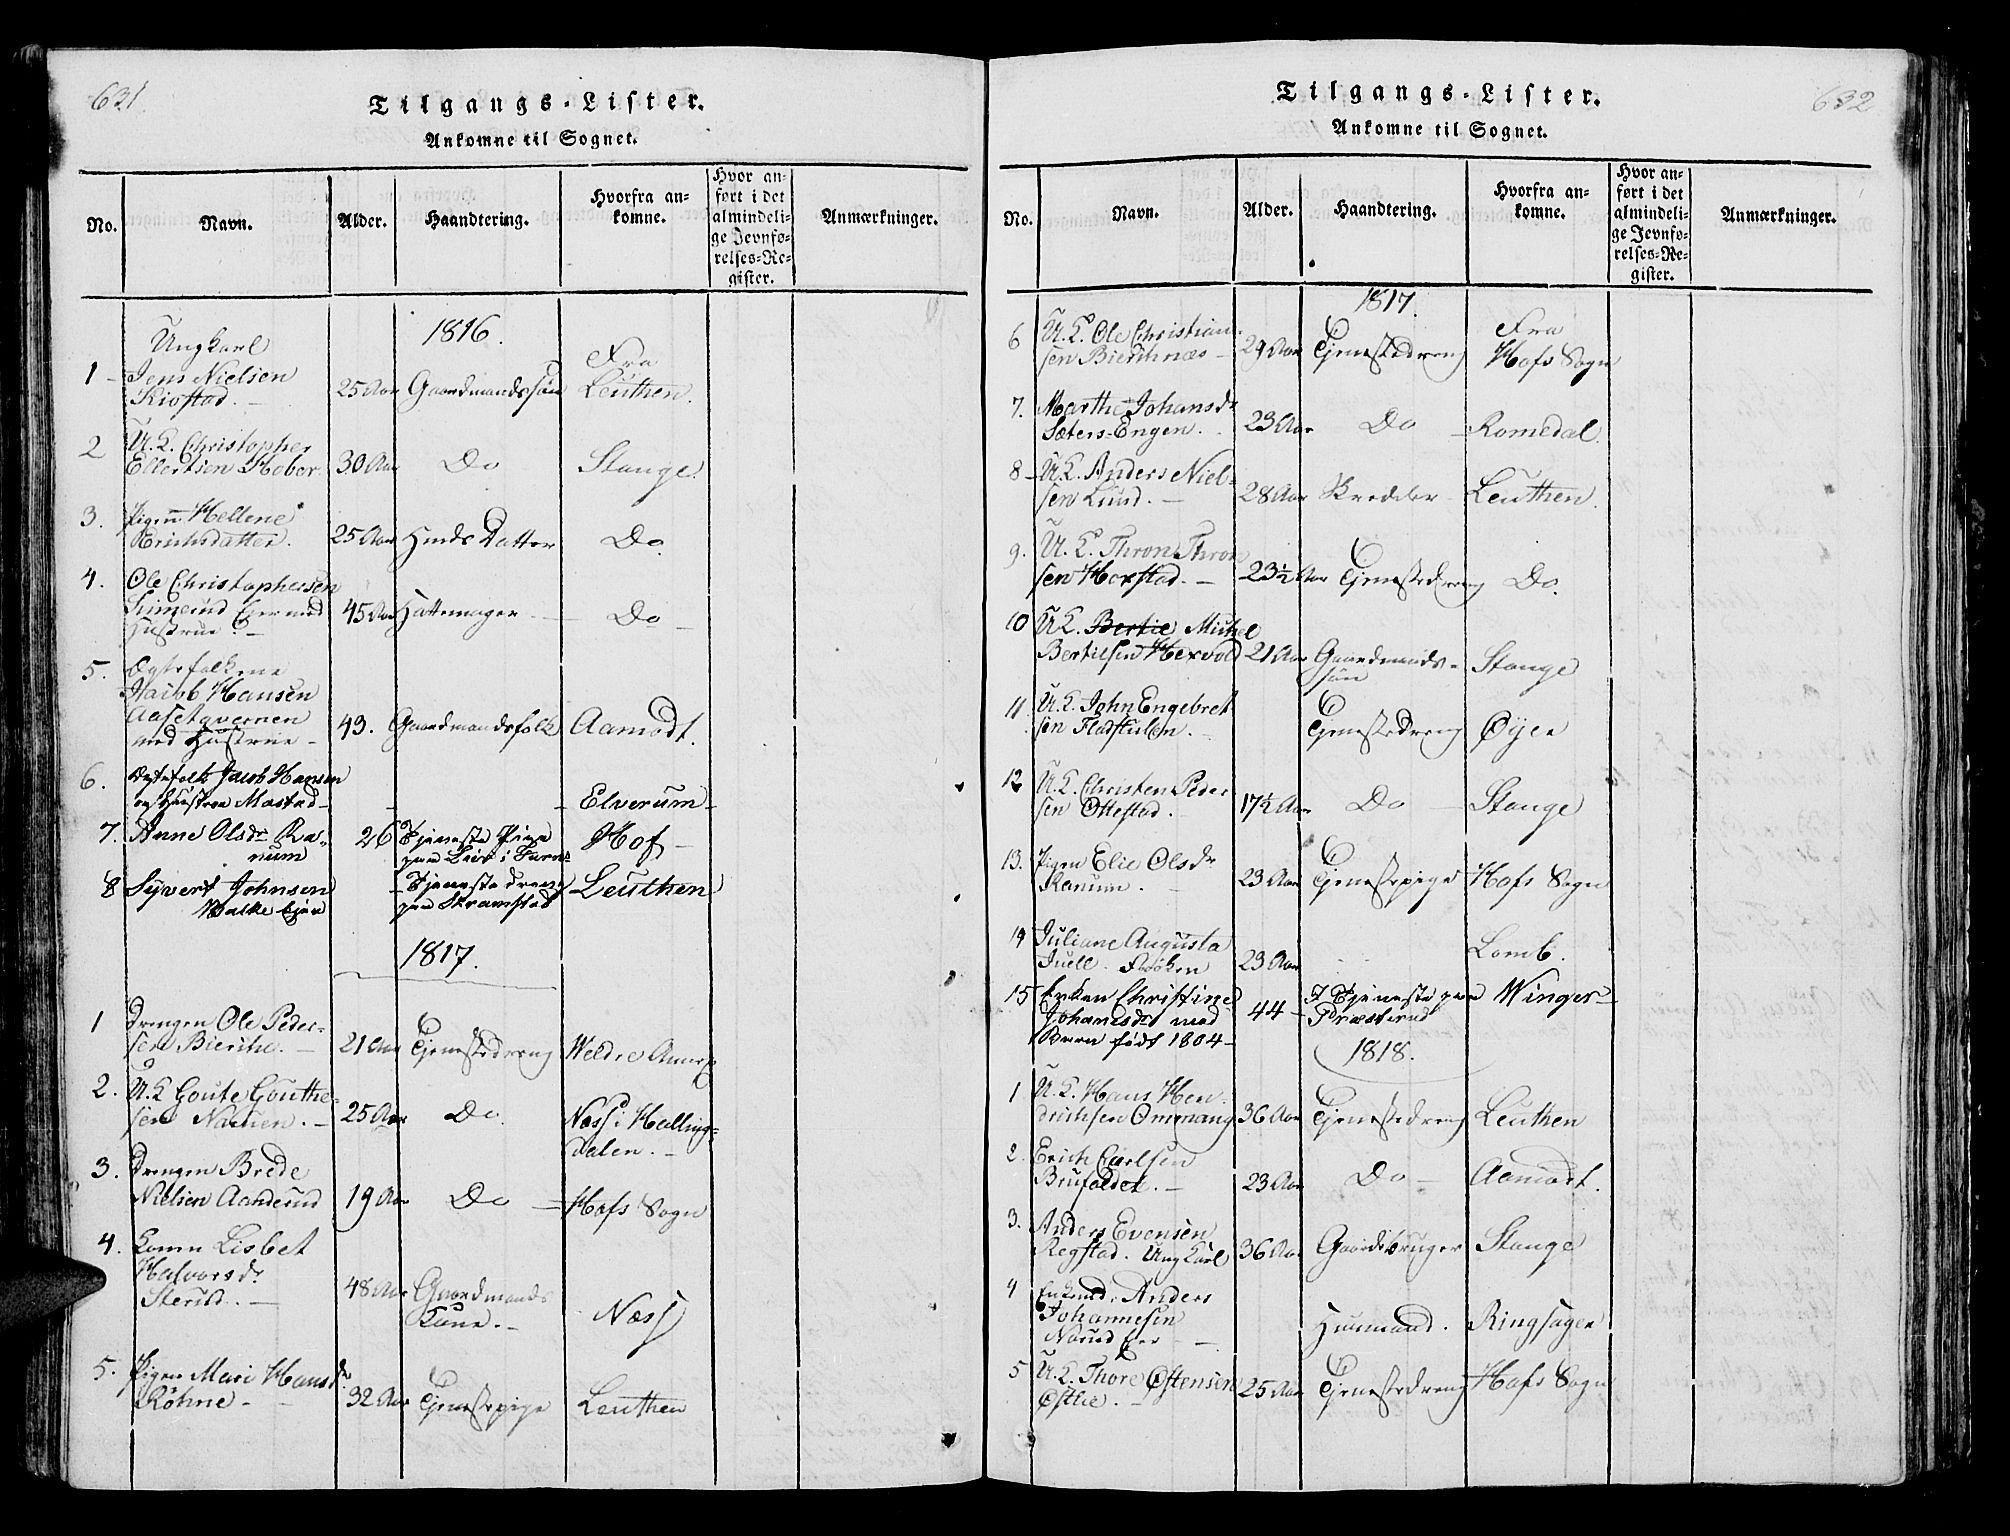 631.
Tilgangs-Lister.
Ankomne til Sognet.
No. Navn. Alder. Haandtering. Hvorfra an-
komne. Hvor an-
ført i det
almindeli-
ge Jevnfø-
relses-Re-
gister. Anmærkninger.
1816.
Ungkarl Fra
1 - Jens Nielsen 25 Aar Gaardmandssøn Leuthen.
Kiostad. -
2 U. K. Christopher
Ellertsen Hober 30 Aar Do Stange.
3. Pigen Hellene
Erichsdatter. 25 Aar Huusds Datter Do.
4. Ole Christophersen
Eier med 45 Aar Hattemager - Do -
Hustrue. -
5. Ægtefolkene
Jacob Hansen
Aasetavernen 49. Gaardmandsfolk Aamodt.
med Hustrue -
6. Ægtefolk Jacob Hansen
og Hustrue Mostad - - Elverum -
7. Anne Olsdr Ra- 26 Tjeneste Pige Hof -
num paa Lier i Furn.
8 Syvert Johnsen - Tjeneste dreng Leuthen
Balke Eier paa Skramstad
1817.
1 Drengen Ole Peder-
sen Bierche. - 21 Aar Tjenestedreng Weldre Annex
2. U. K. Goute Gouthe-
sen Narüen. - 25 Aar Do. Næss i Halling-
dalen. -
3. Drengen Brede
Nielsen Aanderud 19 Aar Do - Hofs Sogn
4. Konen Lisbet
Halvorsdr 48 Aar Gaardmands
Sterud. - Kone. - Næss
5. Pigen Mari Hansdr
Røhne - - 32 Aar Tjenestepige Leuthen
632
Tilgangs-Lister.
Ankomne til Sognet.
No. Navn. Alder. Haandtering. Hvorfra an-
komne. Hvor an-
ført i det
almindeli-
ge Jevnfø-
relses-Re-
gister. Anmærkninger.
1817.
6 U. K. Ole Christian- Fra
sen Bierchnæs - 29 Aar Tjenestedreng Hofs Sogn
7. Marthe Johansdr
Sæters-Engen. - 23 Aar Do - Romedal.
8 - U. K. Anders Niel-
sen Lund. - 28 Aar Skreder - Leuthen.
9. U. K. Thron Thron
sen Hoxstad. - 23½ Aar Tjenestedreng Do.
10 U. K. Bertil Michel
Bertilsen Hexvold 21 Aar Gaardmands- Stange
søn
11. U. K. John Engebret
sen Fladstulen. - Tjenestedreng Øyer
12 U. K. Christen Peder
sen Ottestad. 17½ Aar Do - Stange
13. Pigen Elie Olsdr
Ranum. - 23 Aar Tjenestepige Hofs Sogn
14 Juliane Augusta Lomb.
Juell. Frøken 23 Aar
15 Enken Christine I Tjeneste paa Winger -
Johansdr med 44 - Præsterud
Barn født 1804 -
1818.
1 U. K. Hans Hen
drichsen Ommang 36 Aar Tjenestedreng Leuthen
2. Erich Carlsen
Brufaldet. - 23 Aar Do - Aamodt.
3. Anders Evensen
Regstad. Ung Karl 36 Aar Gaardbruger Stange
4 Enkemd. Anders
Johannesen
Narud Eier - Huusmand. Ringsager
5 U. K. Thore Østensen 25 Aar Tjenestedreng Hofs Sogn
Østlie. -